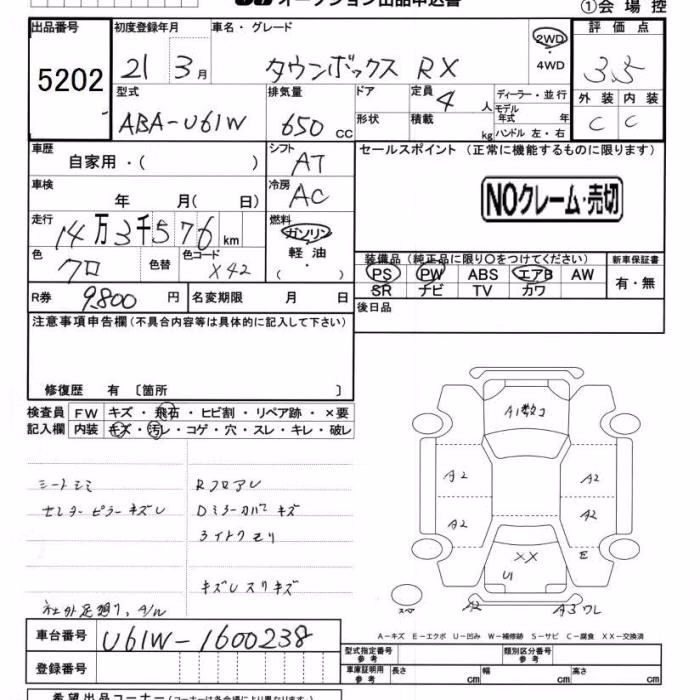 オークション出品申込書
①会場控
出品番号 5202
初度登録年月 21 3月
車名・グレード タウンボックス RX
2WD・4WD
評価点 3.5
外装 C 内装 C
型式 ABA-U61W
排気量 650 CC
ドア 形状
定員 4 人
積載 kg
ディーラー・並行
モデル年式 年
ハンドル 左・右
車歴 自家用・( )
シフト AT
セールスポイント (正常に機能するものに限ります)
NOクレーム・売切
車検 年 月( 日)
冷房 AC
走行 14万3千576km
燃料 ガソリン 軽油 ( )
色 クロ 色替 色コード X42
装備品 (純正品に限り○をつけてください) 新車保証書
PS PW ABS エアB AW 有・無
SR ナビ TV カワ
R券 9,800 円 名変期限 月 日
後日品
注意事項申告欄 (不具合内容等は具体的に記入して下さい)
修復歴 有 〔箇所 〕
検査員 FW キズ・飛石・ヒビ割・リペア跡・×要
記入欄 内装 キズ・汚レ・コゲ・穴・スレ・キレ・破レ
A1数コ
A2 A2
A2 A2
XX E
U1
A2 A3ワレ
シートシミ RフロアU
センターピラーキズU Dミラーカバーキズ
キズUスリキズ
A-キズ E-エクボ U-凹み W-補修跡 S-サビ C-腐食 XX-交換済
車台番号 U61W-1600238
登録番号
型式指定番号 参考 類別区分番号 参考
車庫証明用 参考 長さ cm 幅 cm 高さ cm
希望出品コーナー (コーナーは各会場により異なります)